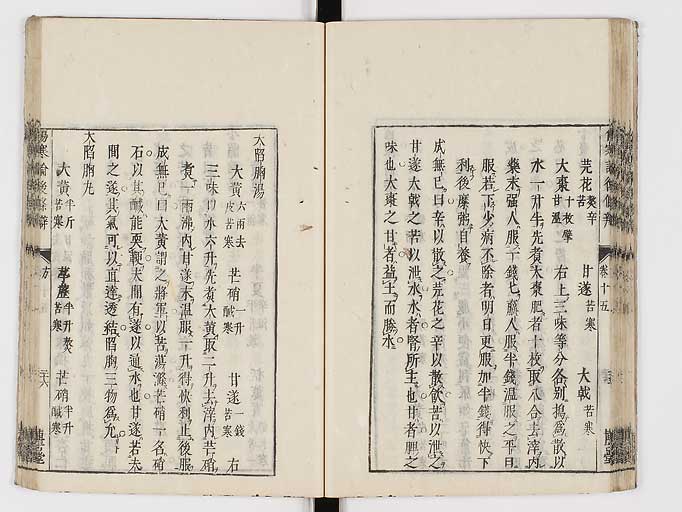 芫花熬辛苦 甘遂苦寒 大戟苦寒
大棗十枚擘甘溫 右上三味等分各別搗爲散以
水一升半先煮大棗肥者十枚取八合去滓內
藥末强人服一錢匕羸人服半錢溫服之平旦
服若下少病不除者明日更服加半錢得快下
利後糜粥自養
成無已曰辛以散之芫花之辛以散飮苦以泄之
甘遂大戟之苦以泄水水者腎所主也甘者脾之
味也大棗之甘者益土而勝水
大陷胸湯
大黃六兩去皮苦寒 芒硝一升鹹寒 甘遂一錢苦寒 右
三味以水六升先煮大黃取二升去滓內芒硝
煮一兩沸內甘遂末溫服一升得快利止後服
成無已曰大黃謂之將軍以苦蕩滌芒硝一名硝
石以其鹹能耎鞕夫間有遂以通水也甘遂若夫
間之遂其氣可以直達透結陷胸三物爲允
大陷胸丸
大黃半斤苦寒 葶藶半升熬苦寒 芒硝半升鹹寒
傷寒論後條辨 方
卷十五